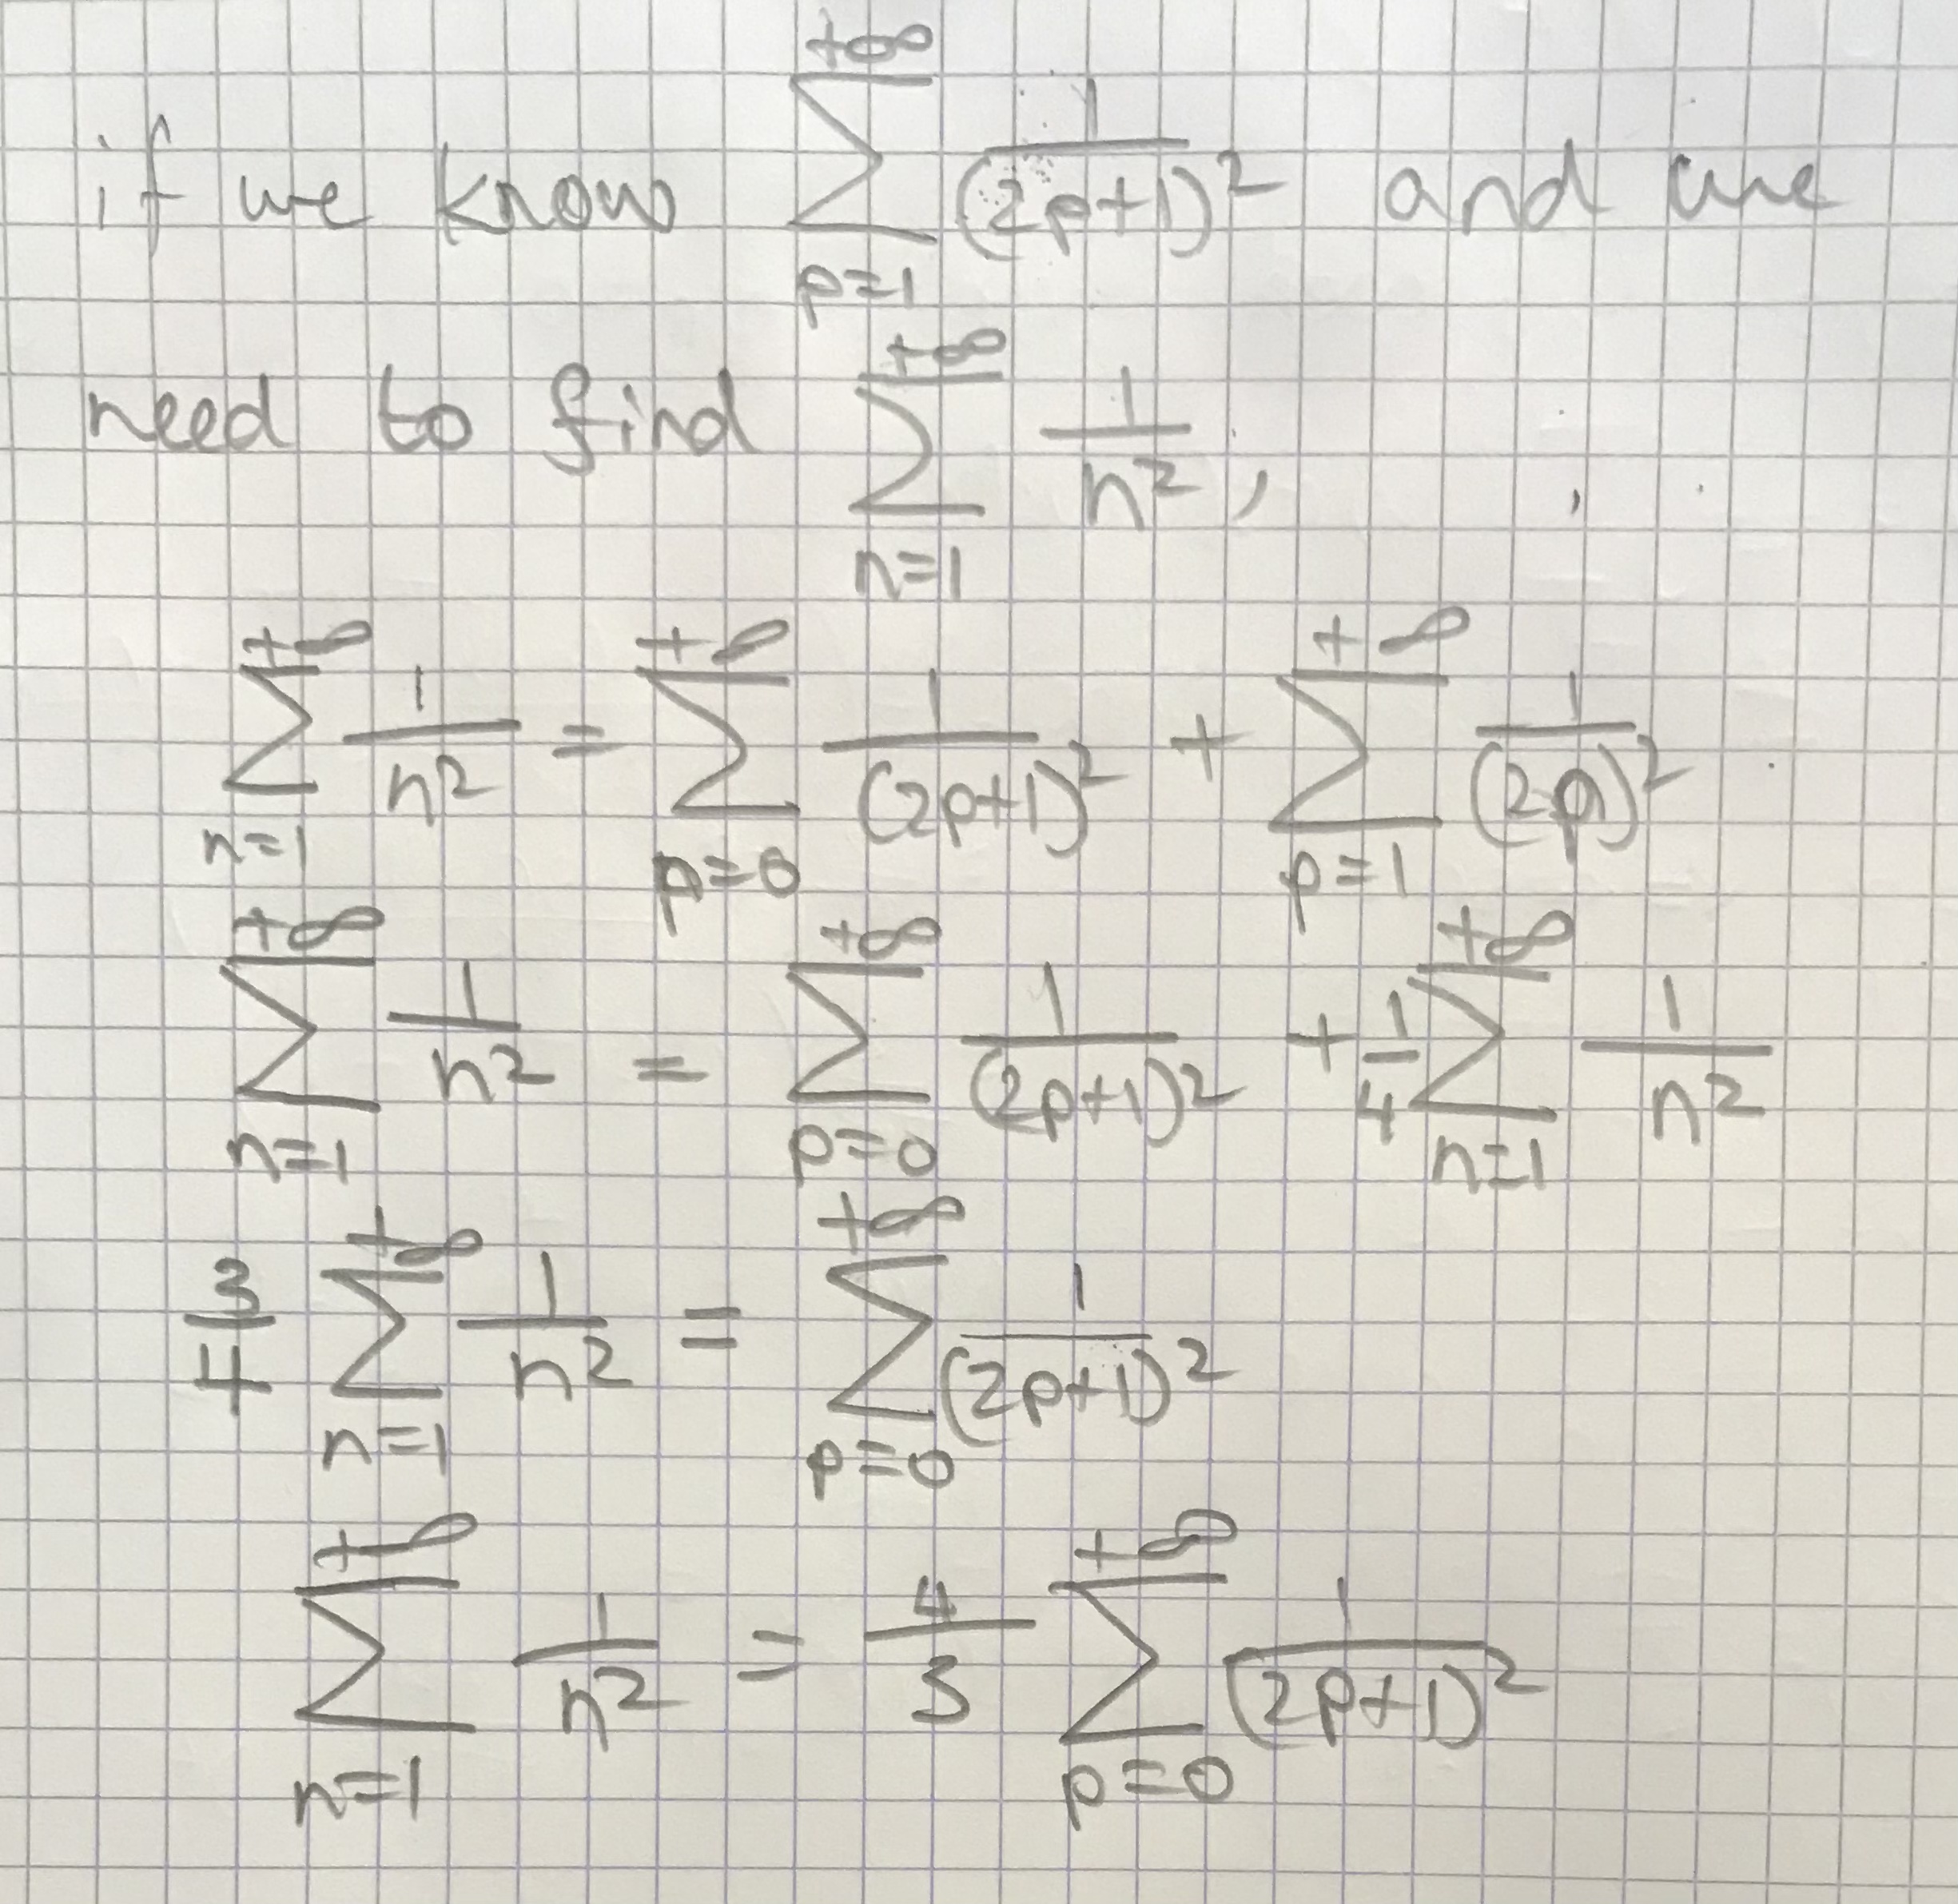 if we know \sum_{p=1}^{+\infty} \frac{1}{(2p+1)^2} and we
need to find \sum_{n=1}^{+\infty} \frac{1}{n^2},
\sum_{n=1}^{+\infty} \frac{1}{n^2} = \sum_{p=0}^{+\infty} \frac{1}{(2p+1)^2} + \sum_{p=1}^{+\infty} \frac{1}{(2p)^2}
\sum_{n=1}^{+\infty} \frac{1}{n^2} = \sum_{p=0}^{+\infty} \frac{1}{(2p+1)^2} + \frac{1}{4} \sum_{n=1}^{+\infty} \frac{1}{n^2}
\frac{3}{4} \sum_{n=1}^{+\infty} \frac{1}{n^2} = \sum_{p=0}^{+\infty} \frac{1}{(2p+1)^2}
\sum_{n=1}^{+\infty} \frac{1}{n^2} = \frac{4}{3} \sum_{p=0}^{+\infty} \frac{1}{(2p+1)^2}